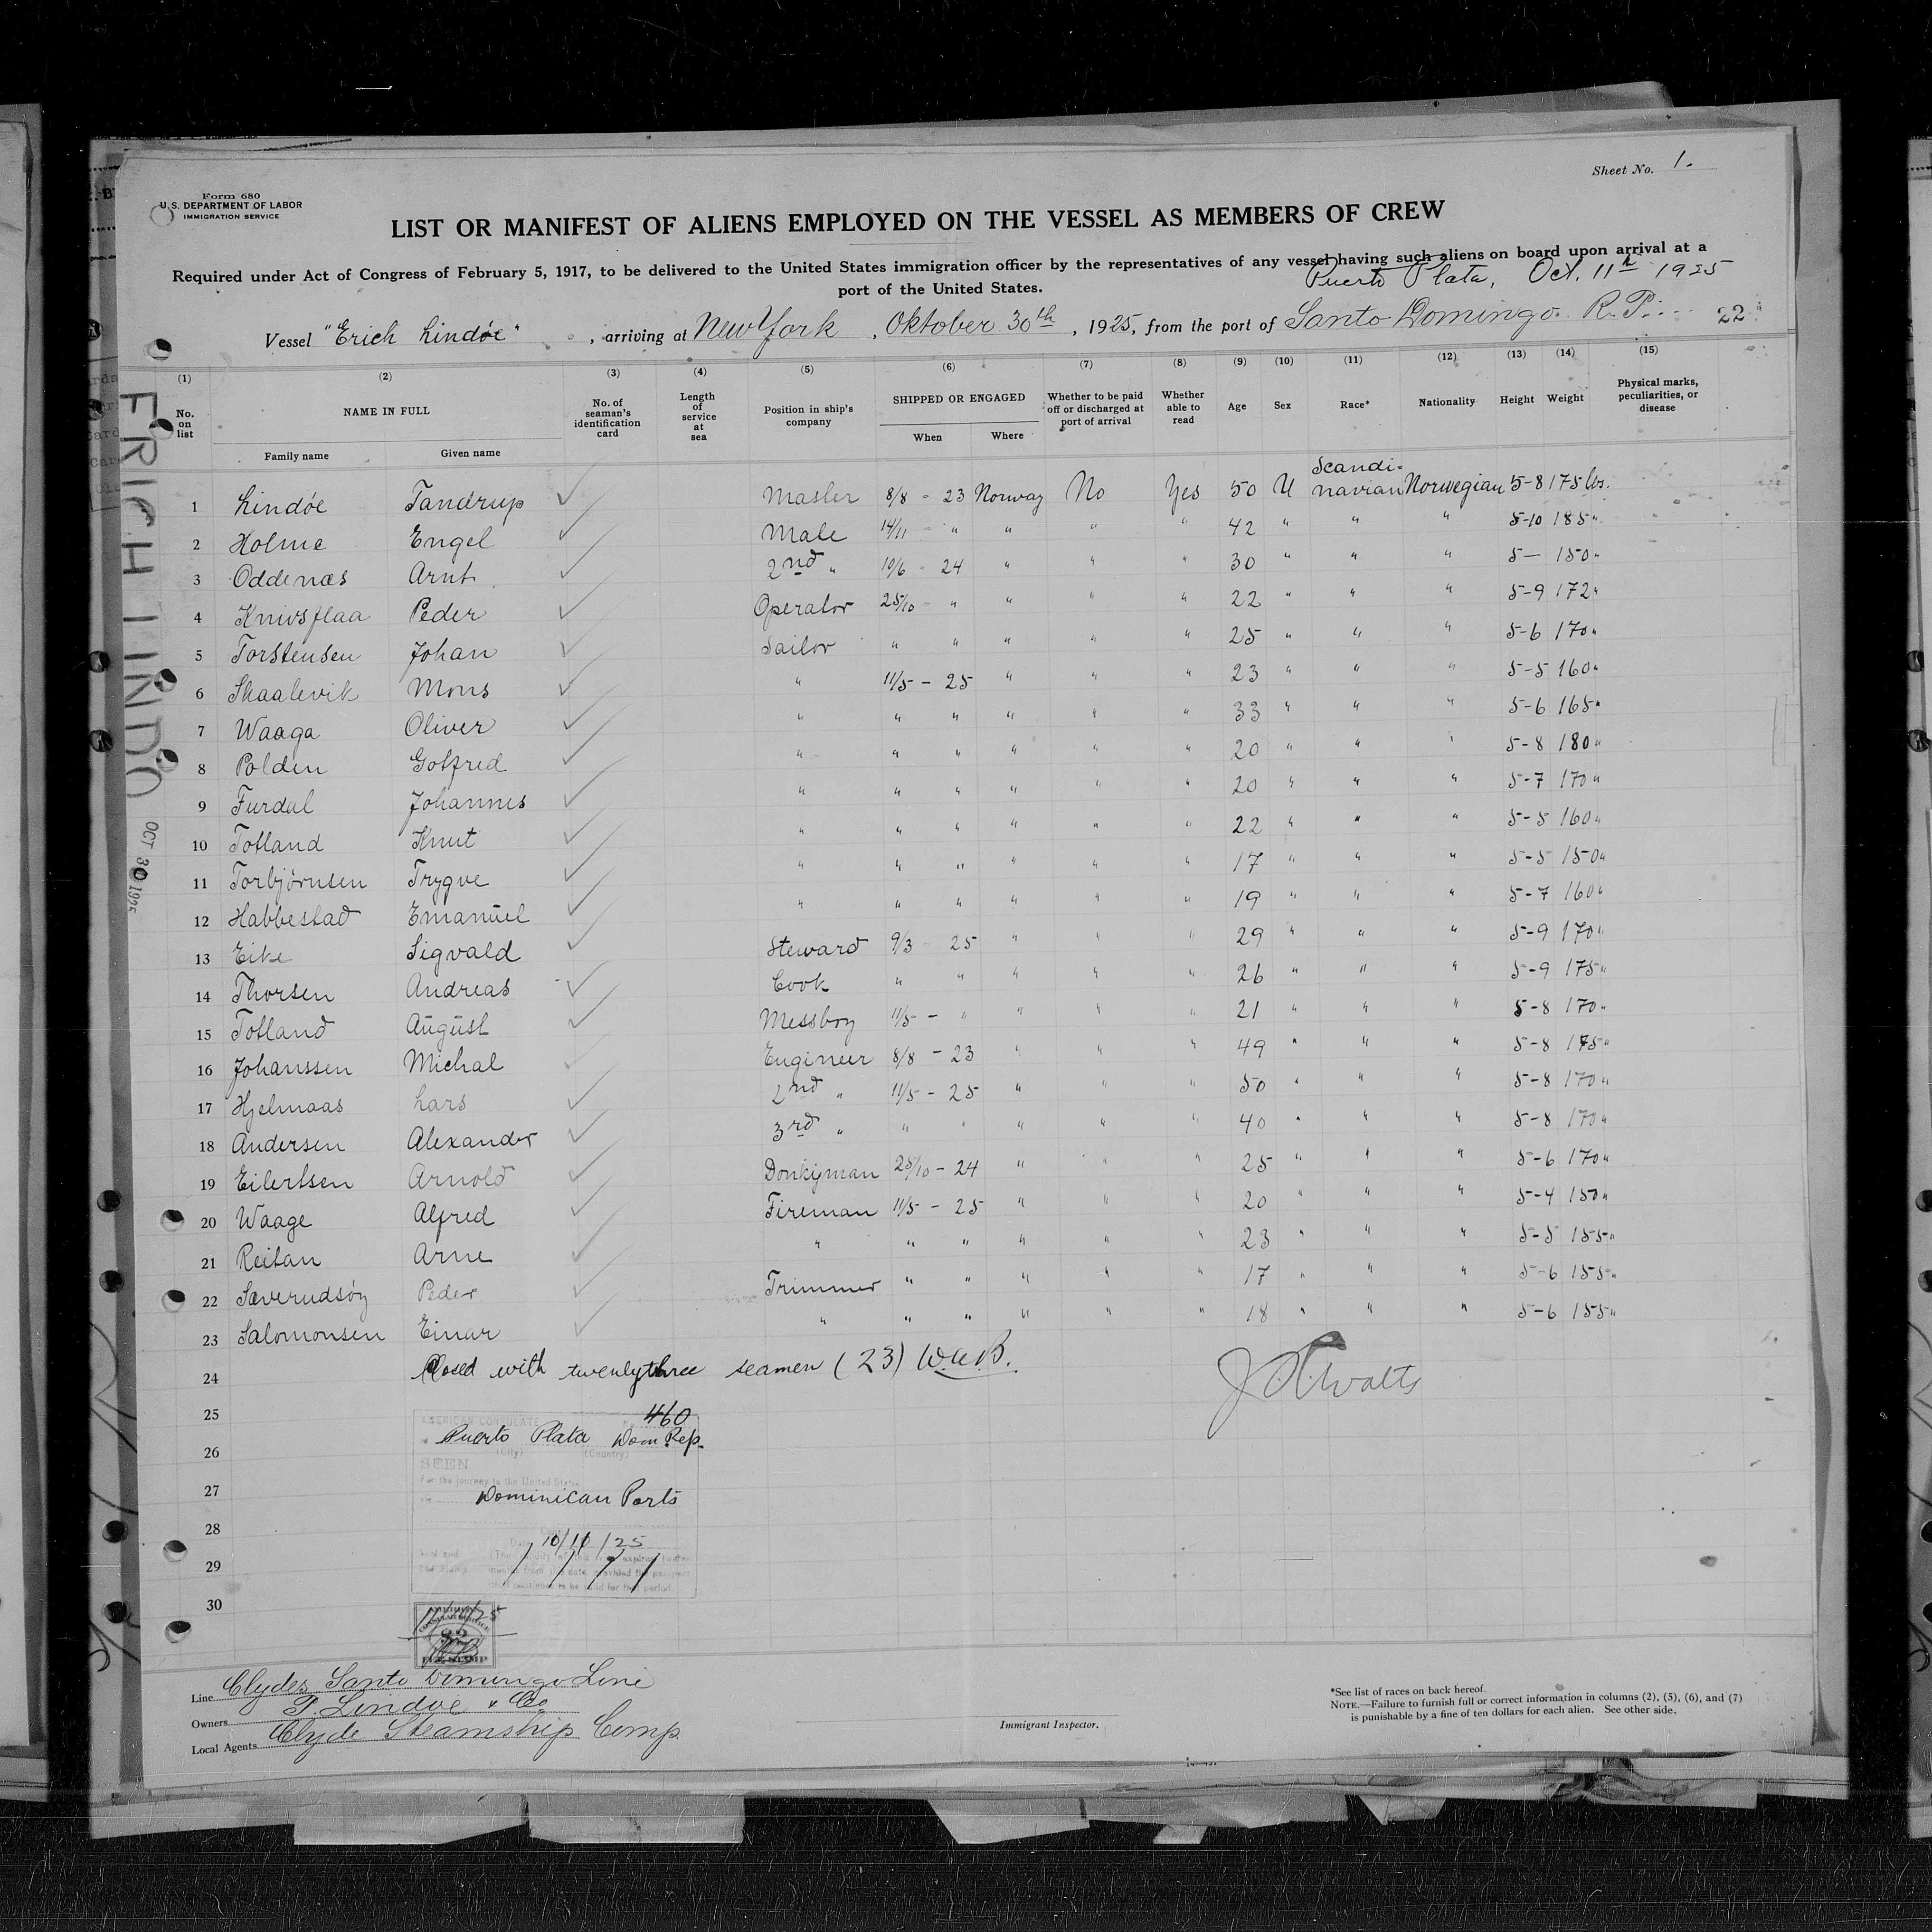 Sheet No. 1.
Form 680
U. S. DEPARTMENT OF LABOR
IMMIGRATION SERVICE
LIST OR MANIFEST OF ALIENS EMPLOYED ON THE VESSEL AS MEMBERS OF CREW
Required under Act of Congress of February 5, 1917, to be delivered to the United States immigration officer by the representatives of any vessel having such aliens on board upon arrival at a
port of the United States.
Puerto Plata, Oct. 11th 1925
Vessel "Erich Lindöe", arriving at New York, Oktober 30th, 1925, from the port of Santo Domingo. 22
(1) (2) (3) (4) (5) (6) (7) (8) (9) (10) (11) (12) (13) (14) (15)
No. on list NAME IN FULL Family name Given name No. of seaman's identification card Length of service at sea Position in ship's company SHIPPED OR ENGAGED When Where Whether to be paid off or discharged at port of arrival Whether able to read Age Sex Race* Nationality Height Weight Physical marks, peculiarities, or disease
1 Lindóe Tandrup Master 8/8 - 23 Norway No Yes 50 Scandinavian Norwegian 5-8 175 lbs.
2 Holme Engel Mate 14/11 - " " " " 42 " " " 5-10 185 "
3 Oddenæs Arnt 2nd " 10/6 - 24 " " " 30 " " " 5— 150 "
4 Knivsflaa Peder Operator 25/10 - " " " " 22 " " " 5-9 172 "
5 Torstensen Johan Sailor " " " " " 25 " " " 5-6 170 "
6 Skaalevik Mons " 11/5 - 25 " " " 23 " " " 5-5 160 "
7 Waaga Oliver " " " " " " 33 " " " 5-6 165 "
8 Polden Gotfred " " " " " " 20 " " " 5-8 180 "
9 Furdal Johannes " " " " " " 20 " " " 5-7 170 "
10 Totland Knut " " " " " " 22 " " " 5-5 160 "
11 Torbjørnsen Trygve " " " " " " 17 " " " 5-5 150 "
12 Habbestad Emanuel " " " " " " 19 " " " 5-7 160 "
13 Eike Sigvald Steward 9/3 - 25 " " " 29 " " " 5-9 170 "
14 Thorsen Andreas Cook " " " " " 26 " " " 5-9 175 "
15 Totland August Messboy 11/5 - " " " " 21 " " " 5-8 170 "
16 Johanssen Michal Engineer 8/8 - 23 " " " 49 " " " 5-8 175 "
17 Hjelmaas Lars 2nd " 11/5 - 25 " " " 50 " " " 5-8 170 "
18 Andersen Alexander 3rd " " " " " " 40 " " " 5-8 170 "
19 Eilertsen Arnold Donkijman 25/10 - 24 " " " 25 " " " 5-6 170 "
20 Waage Alfred Fireman 11/5 - 25 " " " 20 " " " 5-4 150 "
21 Reitan Arne " " " " " " 23 " " " 5-5 155 "
22 Sæverudsöy Peder Trimmer " " " " " 17 " " " 5-6 155 "
23 Salomonsen Einar " " " " " " 18 " " " 5-6 155 "
24 Closed with twentythree seamen (23)
25
26
27
28
29
30
AMERICAN CONSULATE 460
Puerto Plata Dom Rep.
(City) (Country)
SEEN
For the journey to the United States
Dominican Ports
10/10/25
FEE STAMP
ERICH LINDO
OCT 30 1925
Line Clydes Santo Domingo Line
Owners T. Lindöe & Co
Local Agents Clyde Steamship Comp.
Immigrant Inspector.
*See list of races on back hereof.
NOTE.—Failure to furnish full or correct information in columns (2), (5), (6), and (7)
is punishable by a fine of ten dollars for each alien. See other side.